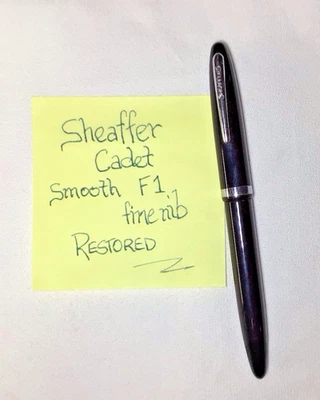 Sheaffer
Cadet
Smooth F1,
fine nib
RESTORED